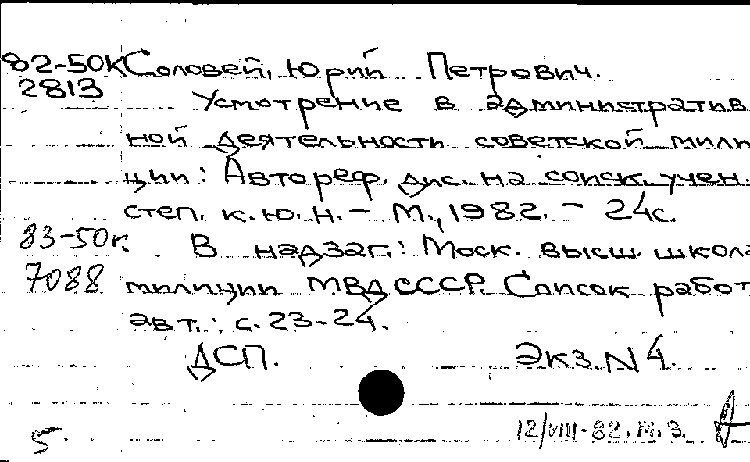 82-50К Соловей, Юрий Петрович.
2813
Усмотрение в административ
ной деятельности советской мили
ции: Автореф. дис. на соиск. учен.
степ. к.ю.н. - М., 1982. - 24с.
83-50к. В надзаг.: Моск. высш. школа
7088 милиции МВД СССР. Список работ
авт.: с. 23-24.
ДСП. Экз. N 4.
12/VIII-82. М.З.
5.